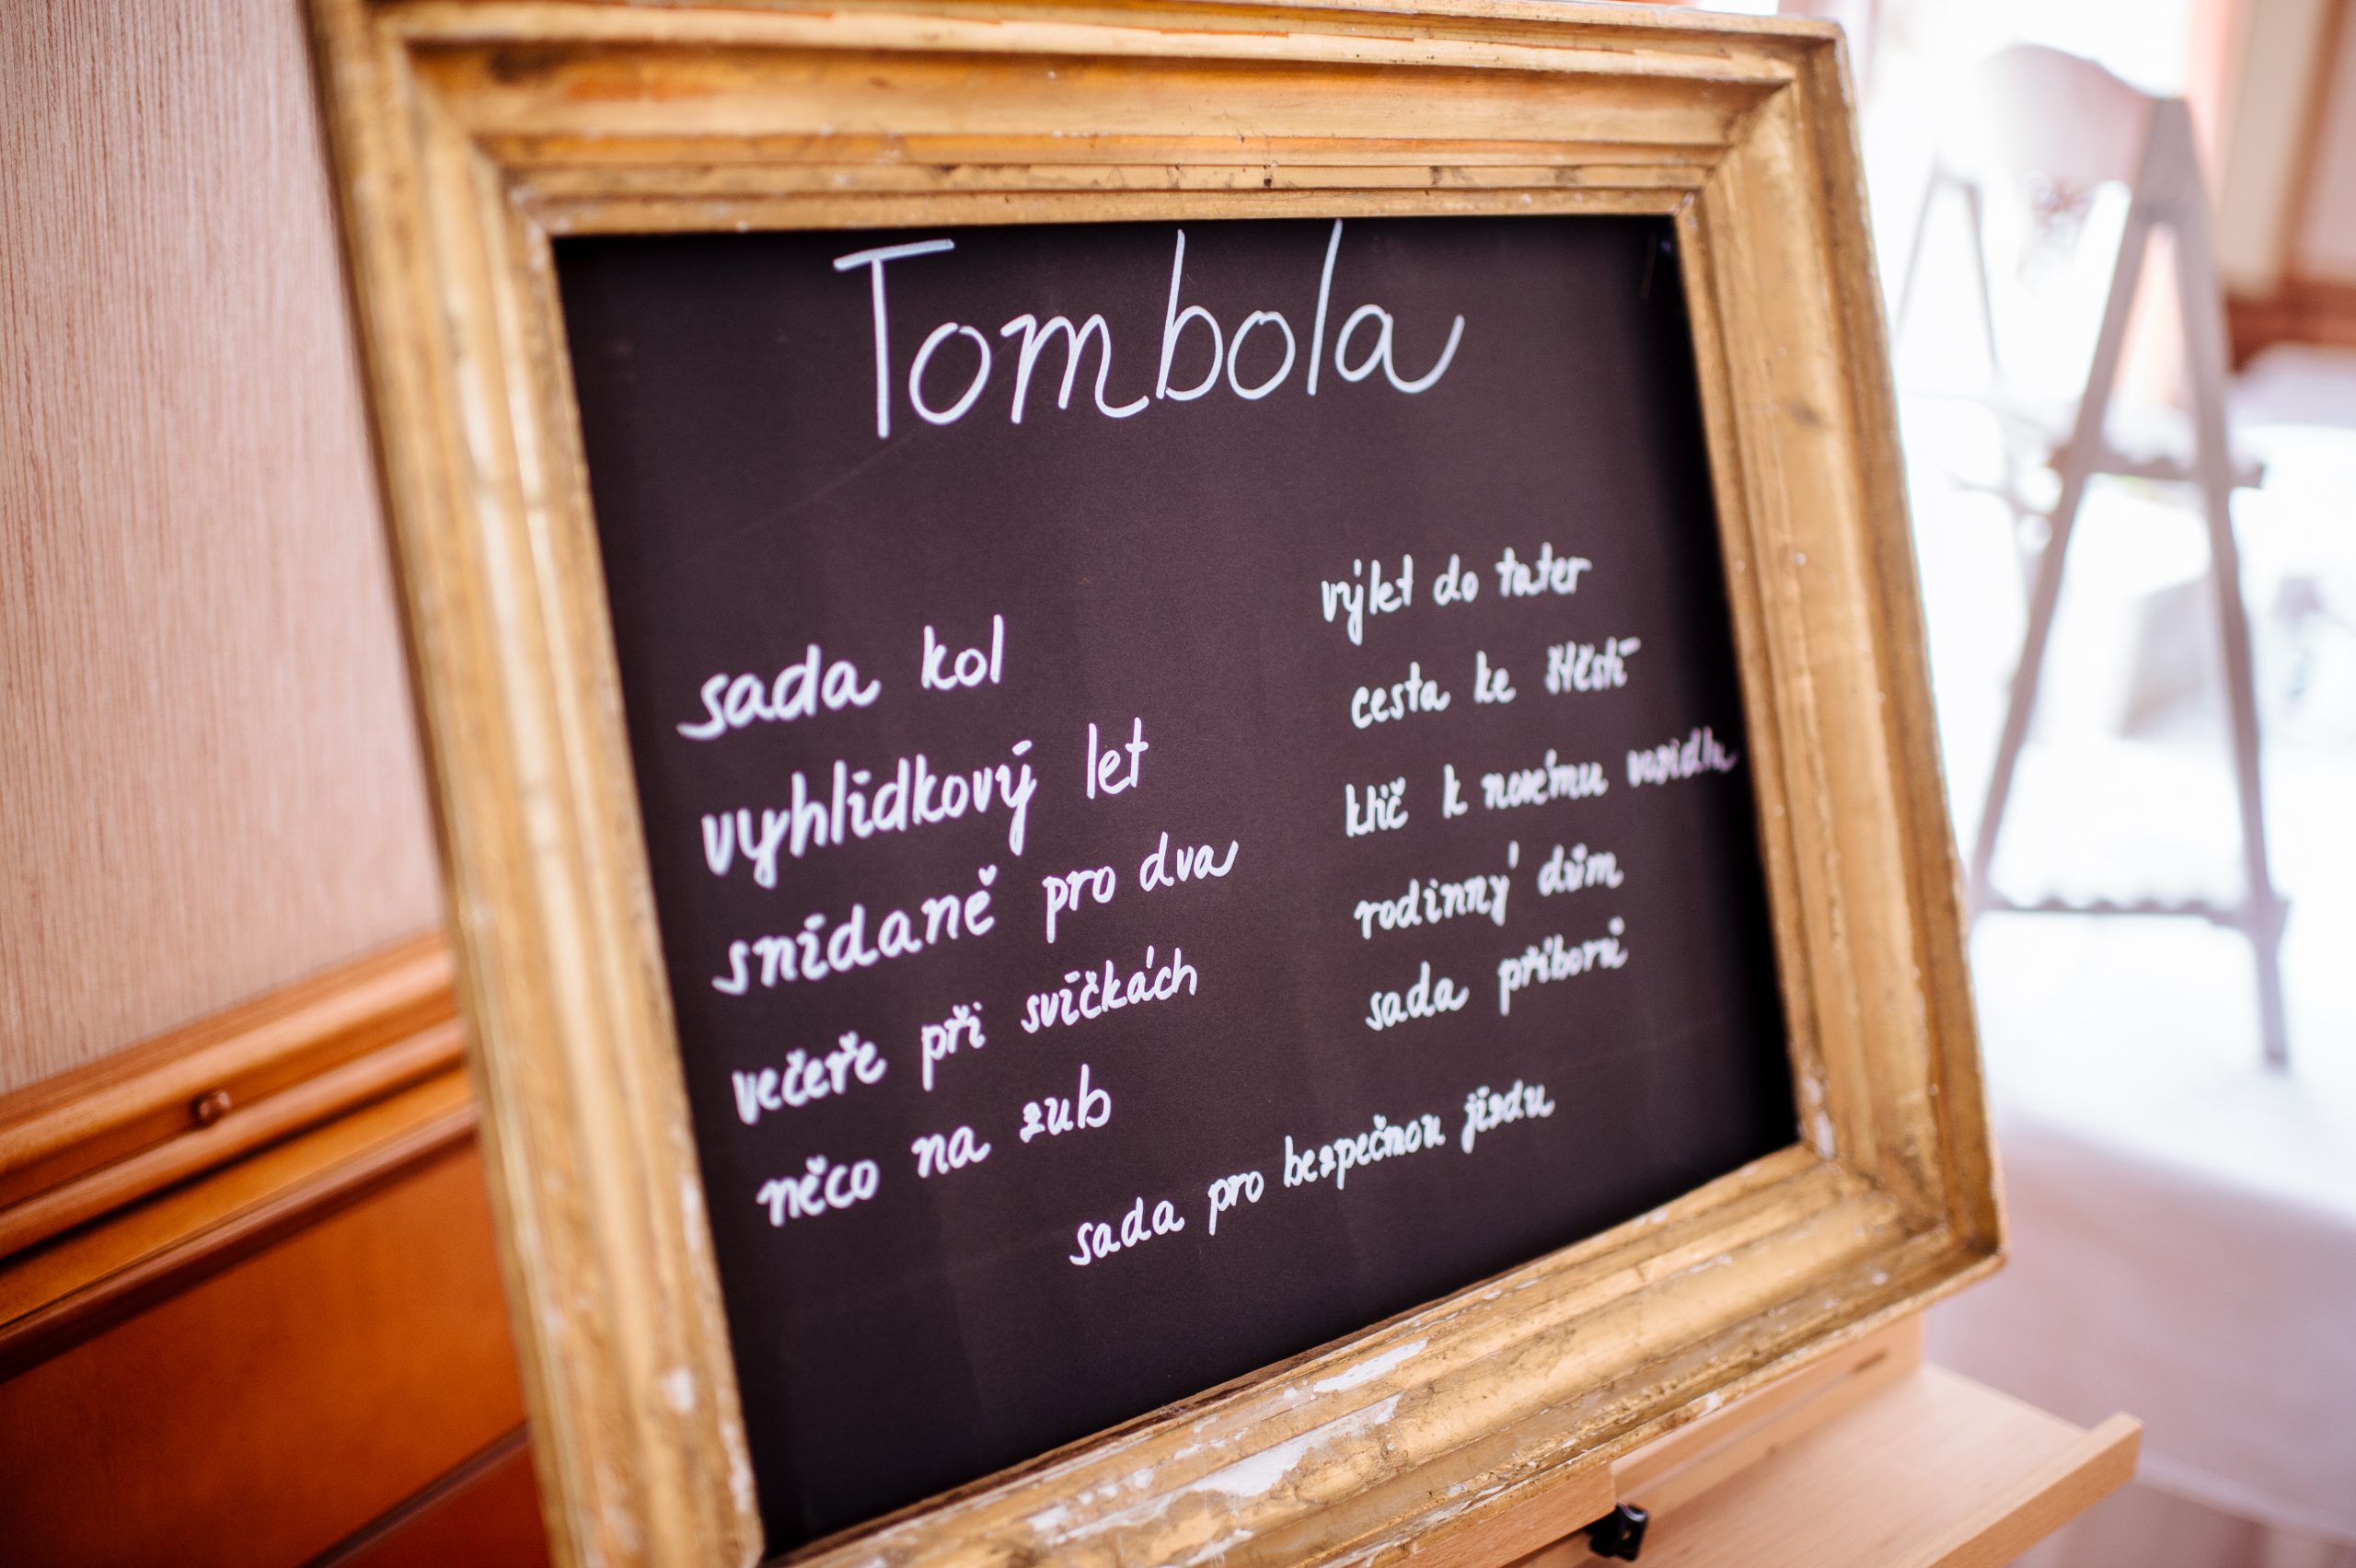 Tombola
sada kol
vyhlídkový let
snídaně pro dva
večeře při svíčkách
něco na zub
výlet do tater
cesta ke štěstí
klíč k novému vozidlu
rodinný dům
sada příborů
sada pro bezpečnou jízdu